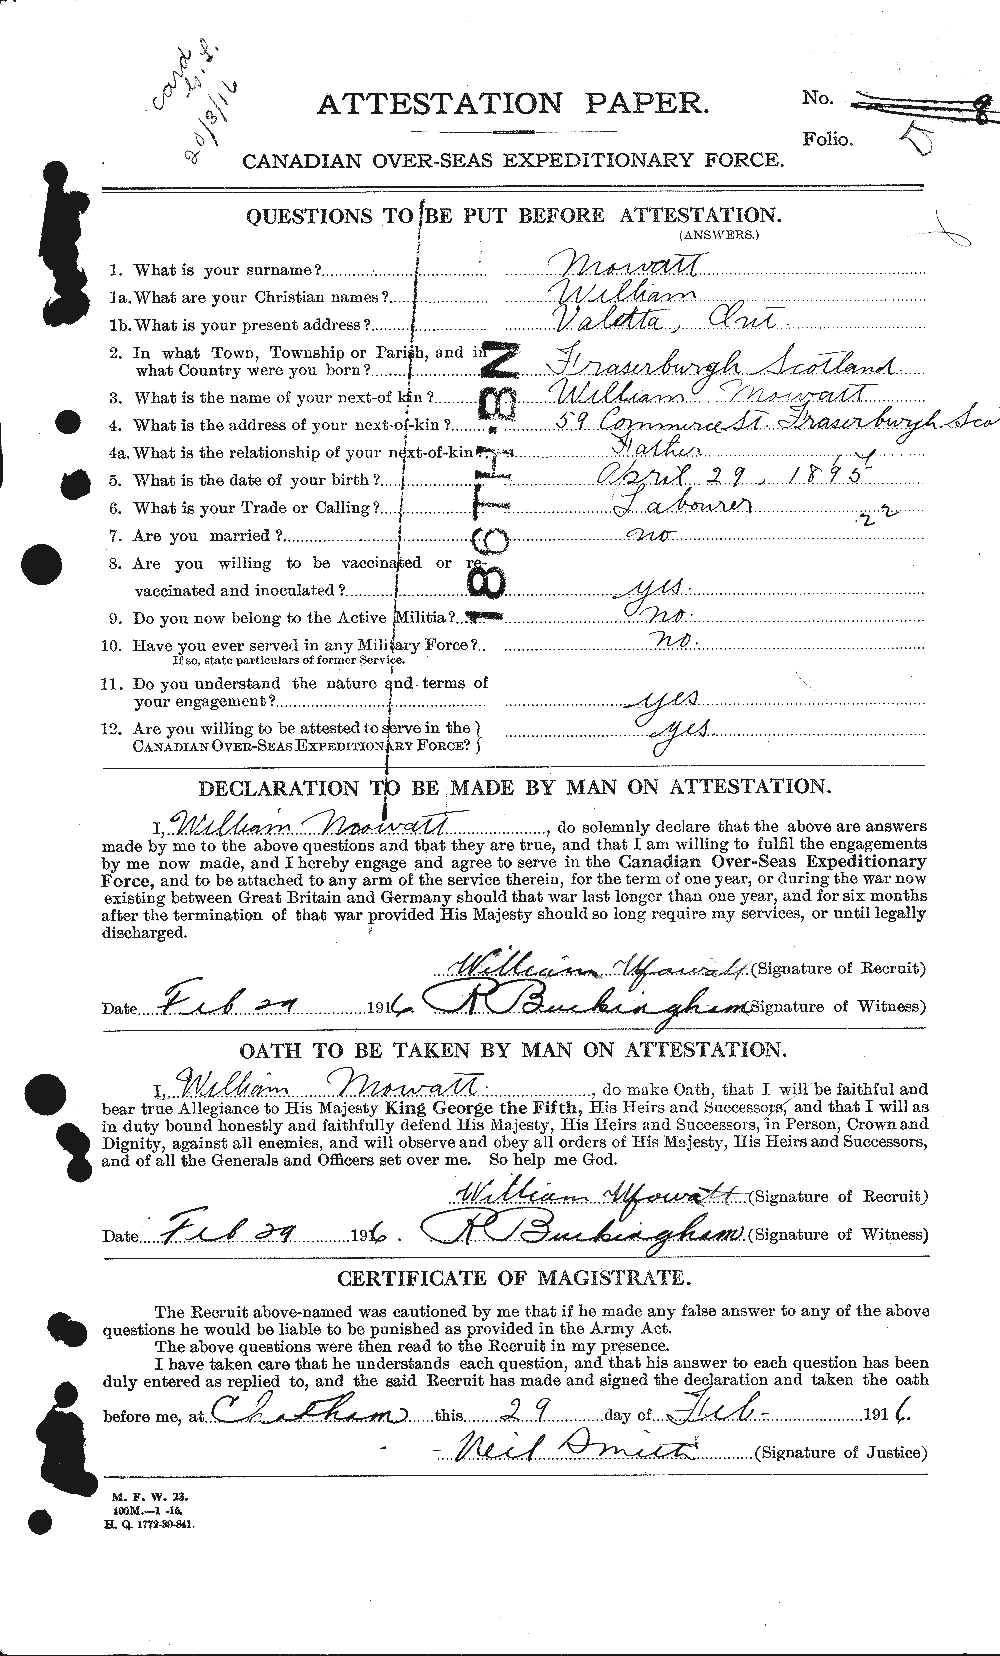 card
20/3/16
ATTESTATION PAPER.
No.
Folio.
CANADIAN OVER-SEAS EXPEDITIONARY FORCE.
QUESTIONS TO BE PUT BEFORE ATTESTATION.
(ANSWERS.)
1. What is your surname? Mowatt
1a. What are your Christian names? William
1b. What is your present address? Valetta, Ont.
2. In what Town, Township or Parish, and in
what Country were you born? Fraserburgh Scotland
3. What is the name of your next-of kin? William Mowatt
4. What is the address of your next-of-kin? 59 Commerce St. Fraserburgh Sco
4a. What is the relationship of your next-of-kin? Father
5. What is the date of your birth? April 29, 1895
6. What is your Trade or Calling? Labourer
22
7. Are you married? no
8. Are you willing to be vaccinated or re-
vaccinated and inoculated? yes.
9. Do you now belong to the Active Militia? no.
10. Have you ever served in any Military Force? no.
If so, state particulars of former Service.
11. Do you understand the nature and terms of
your engagement? yes
12. Are you willing to be attested to serve in the
CANADIAN OVER-SEAS EXPEDITIONARY FORCE? yes
186TH. BN
DECLARATION TO BE MADE BY MAN ON ATTESTATION.
I, William Mowatt, do solemnly declare that the above are answers
made by me to the above questions and that they are true, and that I am willing to fulfil the engagements
by me now made, and I hereby engage and agree to serve in the Canadian Over-Seas Expeditionary
Force, and to be attached to any arm of the service therein, for the term of one year, or during the war now
existing between Great Britain and Germany should that war last longer than one year, and for six months
after the termination of that war provided His Majesty should so long require my services, or until legally
discharged.
William Mowatt (Signature of Recruit)
Date Feb 29 1916 R Buckingham (Signature of Witness)
OATH TO BE TAKEN BY MAN ON ATTESTATION.
I, William Mowatt, do make Oath, that I will be faithful and
bear true Allegiance to His Majesty King George the Fifth, His Heirs and Successors, and that I will as
in duty bound honestly and faithfully defend His Majesty, His Heirs and Successors, in Person, Crown and
Dignity, against all enemies, and will observe and obey all orders of His Majesty, His Heirs and Successors,
and of all the Generals and Officers set over me. So help me God.
William Mowatt (Signature of Recruit)
Date Feb 29 1916. R Buckingham (Signature of Witness)
CERTIFICATE OF MAGISTRATE.
The Recruit above-named was cautioned by me that if he made any false answer to any of the above
questions he would be liable to be punished as provided in the Army Act.
The above questions were then read to the Recruit in my presence.
I have taken care that he understands each question, and that his answer to each question has been
duly entered as replied to, and the said Recruit has made and signed the declaration and taken the oath
before me, at Chatham this 29 day of Feb- 1916.
Neil Smith (Signature of Justice)
M. F. W. 23.
100M.—1 -16.
H. Q. 1772-39-841.